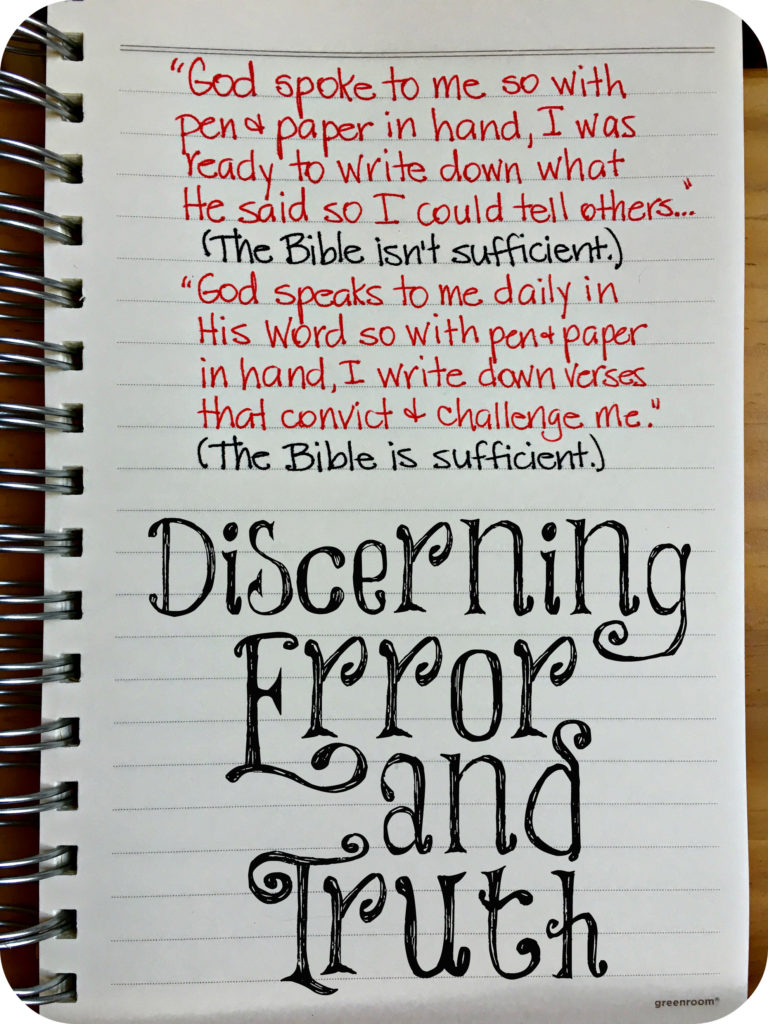 "God spoke to me so with
pen & paper in hand, I was
ready to write down what
He said so I could tell others..."
(The Bible isn't sufficient.)
"God speaks to me daily in
His Word so with pen & paper
in hand, I write down verses
that convict & challenge me."
(The Bible is sufficient.)
Discerning
Error
and
Truth
greenroom®